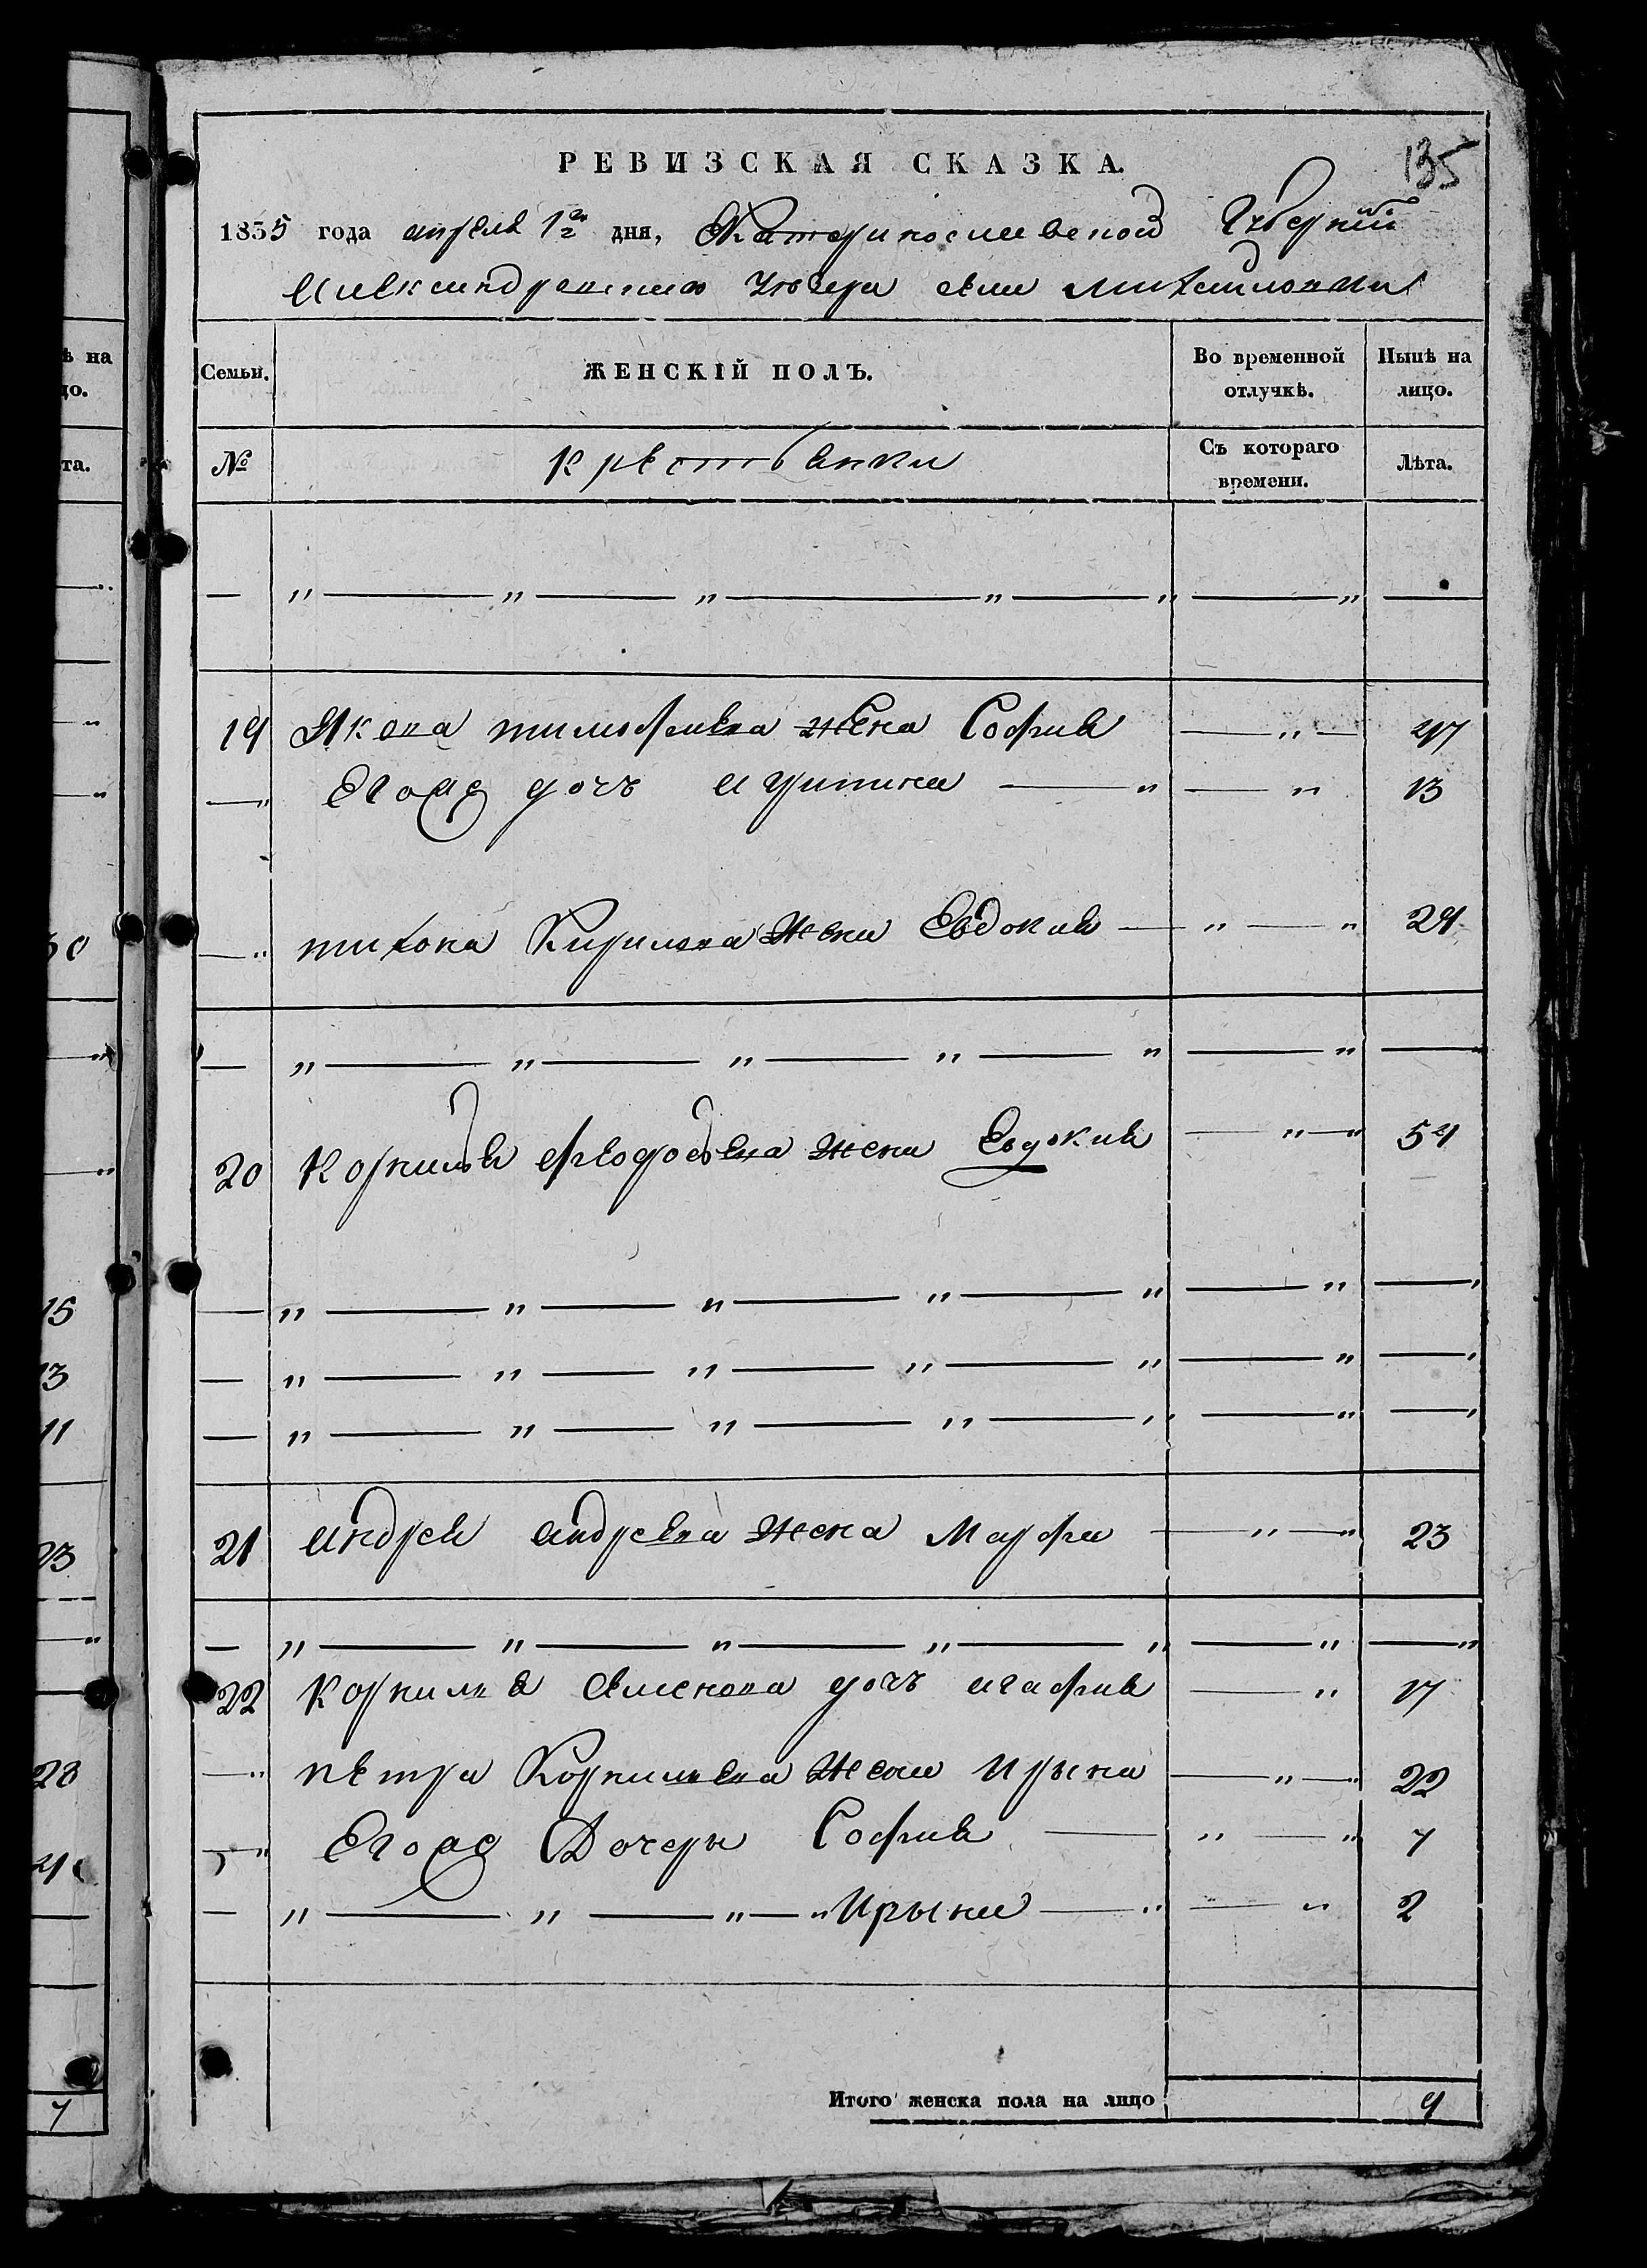 РЕВИЗСКАЯ СКАЗКА.
135
1835 года апреля 1го дня, Екатеринославской Губернии
Александровского уезда села Михайловки
Семьи.
ЖЕНСКІЙ ПОЛЪ.
Во временной отлучкѣ.
Нынѣ на лицо.
№
крестьянки
Съ котораго времени.
Лѣта.
— „ — „ — „ — „ — „ — „ —
19 Якова тимофеева жена София — „ — 47
— „ Егоже дочь агрипина — „ — „ 13
— „ тихона Кирилова жена Евдокия — „ — „ 29
— „ — „ — „ — „ — „ — „ —
20 Корнилья феодосьева жена Евдокия — „ — „ 54
— „ — „ — „ — „ — „ — „ —
— „ — „ — „ — „ — „ — „ —
— „ — „ — „ — „ — „ — „ —
21 андрея андреева жена Марфа — „ — „ 23
— „ — „ — „ — „ — „ — „ — „
22 Корнилья семенова дочь агафия — „ 17
— „ петра Корнильева жена Ирына — „ — „ 22
— „ Егоже Дочери София — „ — „ 7
— „ — „ — „ — „ Ирына — „ — „ 2
Итого женска пола на лицо 9